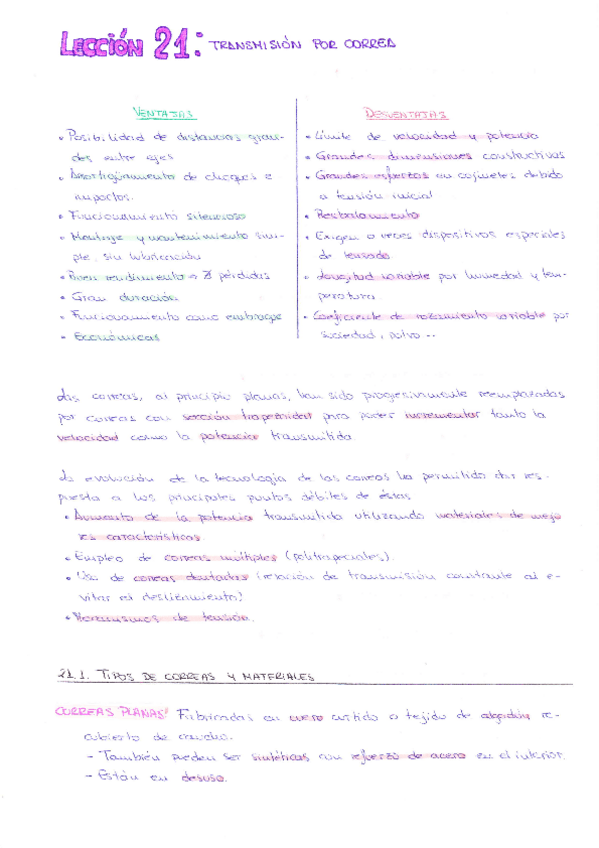 LECCIÓN 21: TRANSMISIÓN POR CORREA
VENTAJAS
• Posibilidad de distancias gran-
des entre ejes
• Amortiguamiento de choques e
impactos.
• Funcionamiento silencioso
• Montaje y mantenimiento sim-
ple, sin lubricación
• Buen rendimiento → pérdidas
• Gran duración
• Funcionamiento como embrague
• Económicas
DESVENTAJAS
• Límite de velocidad y potencia
• Grandes dimensiones constructivas
• Grandes esfuerzos en cojinetes debido
a tensión inicial
• Resbalamiento
• Exigen a veces dispositivos especiales
de tensado
• Longitud variable por humedad y tem-
peratura.
• Coeficiente de rozamiento variable por
suciedad, polvo ..
Las correas, al principio planas, han sido progresivamente reemplazadas
por correas con sección trapezoidal para poder incrementar tanto la
velocidad como la potencia transmitida.
La evolución de la tecnología de las correas ha permitido dar res-
puesta a los principales puntos débiles de éstas
• Aumento de la potencia transmitida utilizando materiales de mejo
res características.
• Empleo de correas múltiples
• Uso de correas dentadas (relación de transmisión constante al e-
vitar el deslizamiento)
• Mecanismos de tensión.
21.1. TIPOS DE CORREAS Y MATERIALES
CORREAS PLANAS: Fabricadas en cuero curtido o tejido de algodón re-
cubierto de caucho.
- También pueden ser sintéticas con refuerzo de acero en el interior.
- Están en desuso.